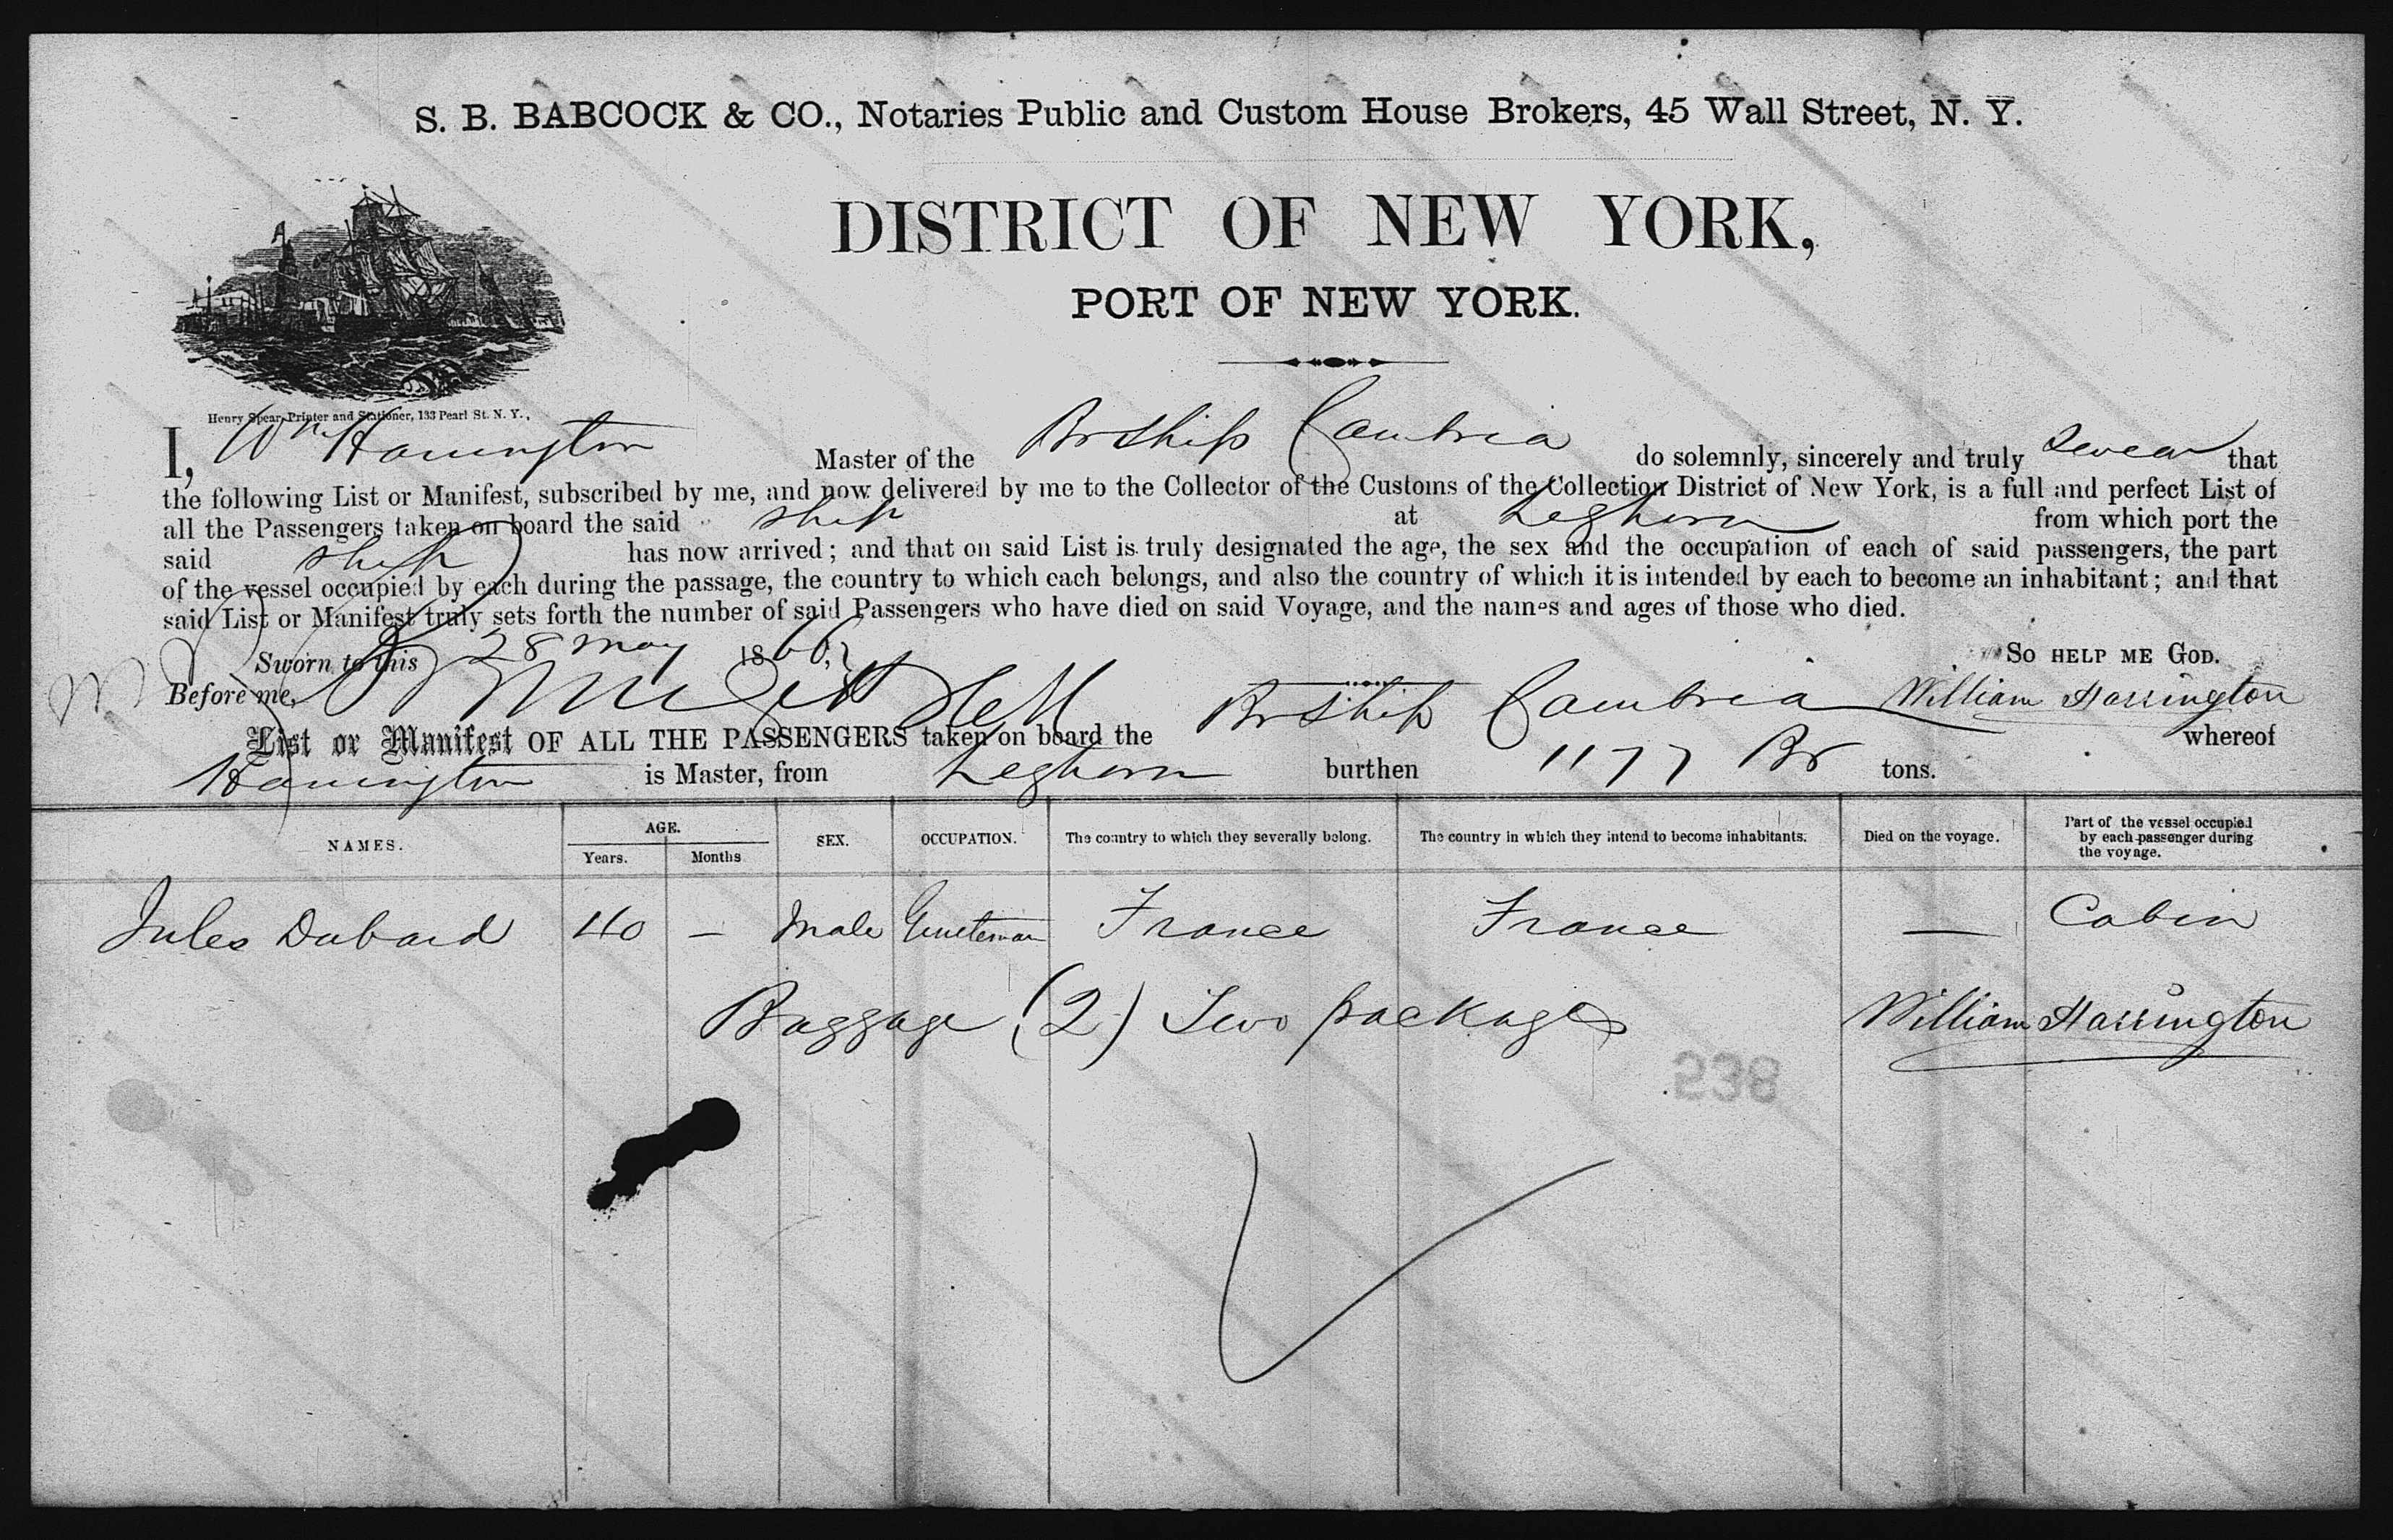 S. B. BABCOCK & CO., Notaries Public and Custom House Brokers, 45 Wall Street, N. Y.
DISTRICT OF NEW YORK,
PORT OF NEW YORK.
Henry Spear, Printer and Stationer, 133 Pearl St. N. Y.,
I, Wm Harrington Master of the Br Ship Cambria do solemnly, sincerely and truly Swear that
the following List or Manifest, subscribed by me, and now delivered by me to the Collector of the Customs of the Collection District of New York, is a full and perfect List of
all the Passengers taken on board the said Ship at Leghorn from which port the
said Ship has now arrived; and that on said List is truly designated the age, the sex and the occupation of each of said passengers, the part
of the vessel occupied by each during the passage, the country to which each belongs, and also the country of which it is intended by each to become an inhabitant; and that
said List or Manifest truly sets forth the number of said Passengers who have died on said Voyage, and the names and ages of those who died.
Sworn to this 28 May 1866, So help me God.
Before me, William Harrington
List or Manifest OF ALL THE PASSENGERS taken on board the Br Ship Cambria whereof
Harrington is Master, from Leghorn burthen 1177 Br tons.
NAMES. AGE. Years. Months SEX. OCCUPATION. The country to which they severally belong. The country in which they intend to become inhabitants. Died on the voyage. Part of the vessel occupied by each passenger during the voyage.
Jules Dubard 40 — Male Gentleman France France — Cabin
Baggage (2) Two packages William Harrington
538